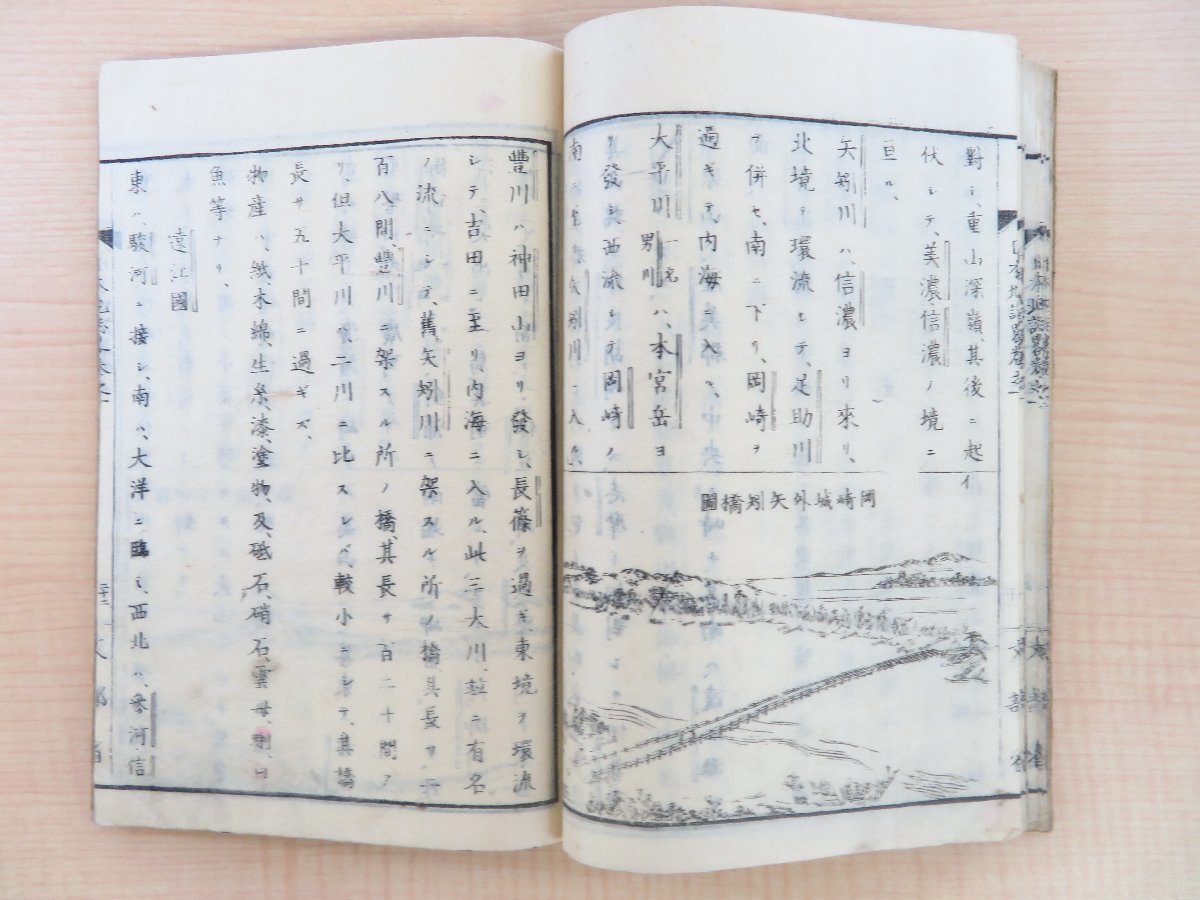 對シ、重山深嶺、其後ニ起
伏シテ、美濃・信濃ノ境ニ
亘ル、
矢矧川ハ、信濃ヨリ來リ、
北境ヲ環流シテ、足助川
ヲ併セ、南ニ下リ、岡崎ヲ
過ギテ、内海ニ入ル、
大平川一名男川ハ、本宮岳ヨ
リ發シ、西流シテ岡崎ノ
南ニ
矢矧川ニ入ル
岡崎城外矢矧橋圖
豐川ハ神田山ヨリ發シ、長篠ヲ過ギ、東境ヲ環流
シテ、吉田ニ至リ、内海ニ入ル、此三大川、竝ニ有名
ノ流ニシテ、舊、矢矧川ニ架スル所ノ橋、其長サ二
百八間、豐川ニ架スル所ノ橋、其長サ百二十間ア
リ、但大平川ハ、二川ニ比スレバ、較小ニシテ、其橋
長サ五十間ニ過ギズ、
物産ハ、紙、木綿、生糸、漆、塗物、及、砥石、硝石、雲母、
魚等ナリ、
遠江國
東ハ、駿河ニ接シ、南ハ、大洋ニ臨ミ、西北ハ、參河・信
日本地誌略卷之一